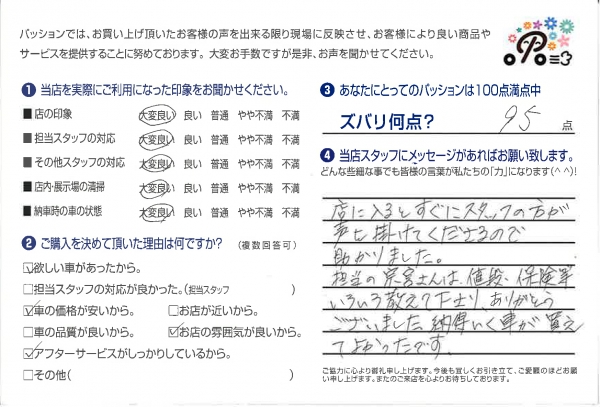 パッションでは、お買い上げ頂いたお客様の声を出来る限り現場に反映させ、お客様により良い商品や
サービスを提供することに努めております。大変お手数ですが是非、お声を聞かせてください。
❶ 当店を実際にご利用になった印象をお聞かせください。
■ 店の印象 大変良い 良い 普通 やや不満 不満
■ 担当スタッフの対応 大変良い 良い 普通 やや不満 不満
■ その他スタッフの対応 大変良い 良い 普通 やや不満 不満
■ 店内・展示場の清掃 大変良い 良い 普通 やや不満 不満
■ 納車時の車の状態 大変良い 良い 普通 やや不満 不満
❷ ご購入を決めて頂いた理由は何ですか? (複数回答可)
☑欲しい車があったから。
□担当スタッフの対応が良かった。(担当スタッフ )
☑車の価格が安いから。 □お店が近いから。
□車の品質が良いから。 ☑お店の雰囲気が良いから。
☑アフターサービスがしっかりしているから。
□その他( )
❸ あなたにとってのパッションは100点満点中
ズバリ何点? 95 点
❹ 当店スタッフにメッセージがあればお願い致します。
どんな些細な事でも皆様の言葉が私たちの「力」になります(^ ^)!
店に入るとすぐにスタッフの方が
声を掛けてくださるので
助かりました。
担当の 宮さんは、値段・保険等
いろいろ教えて下さり、ありがとう
ございました。納得いく車が買え
てよかったです。
ご協力に心より御礼申し上げます。今後も宜しくお引き立て、ご愛顧のほどお願
い申し上げます。またのご来店を心よりお待ちしております。